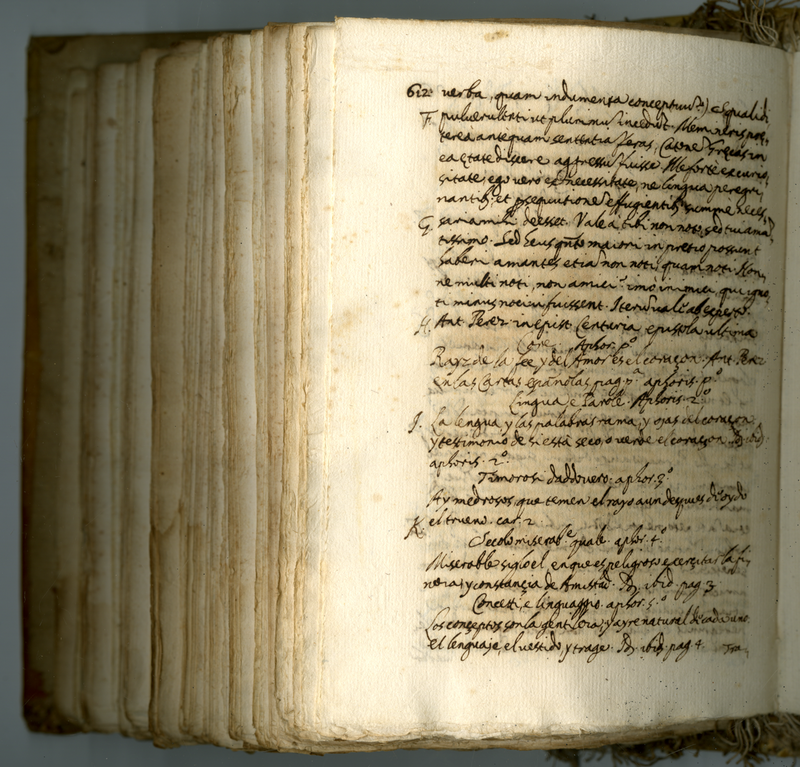 612. verba, quam indumenta conceptuu᷉) squalidi
F. pulverulenti ut plurimu᷉ incedu᷉t. Memineris prę
terea antequam sententia᷉ feras, Catone᷉ Gręcas in
ea ętate discere aggressu᷉ fuisse. Ille forte ex curio,
sitate, ego vero ex necessitate, ne lingua peregri,
nantib. et persequutione᷉ effugientib. summe neces
G. saria mihi deesset. Vale a tibi non noto, sed tui ama᷉
tissimo. Sed heus qn᷉to maiori in pretio possunt
haberi amantes etia᷉ non noti, quam noti. Non,
ne multi noti, non amici: imò inimici, qui igno,
ti minus nocivi fuissent. Iteru᷉ vale ab experto.
H. Ant. Perez. in epist. Centuria epistola ultima
Core. Aphor. p.º
Rayz de la Fee y del Amor es el coraçon. Ant. Perez
en las Cartas españolas pag. aphoris. p.º
Lingua, e Parole. Aphoris. 2.º
I. La lengua, y las palabras rama, y ojas del coraçon,
y testimonio de si està seco, o verde el coraçon. ibid.
aphoris. 2.º
Timorosi daddovero. aphor. 3.º
Ay medrosos, que temen el rayo aun despues de oydo
K. el trueno. car. 2.
Secolo miserab.e quale. aphor. 4.º
Miserable siglo el, en que es peligroso exercitar la fi,
neza, y constançia de Amistad. ibid. pag 3.
Concetti, e linguaggio. aphor. 5.º
Los conceptos son la gentileza, y ayre natural de cada uno.
el lenguaje, el vestido, y trage. ibid. pag 4.